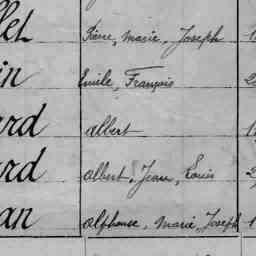 llet Pierre, Marie, Joseph 1
in Emile, François 2
ard Albert 1
ard Albert, Jean, Louis 2
an Alphonse, Marie, Joseph 1